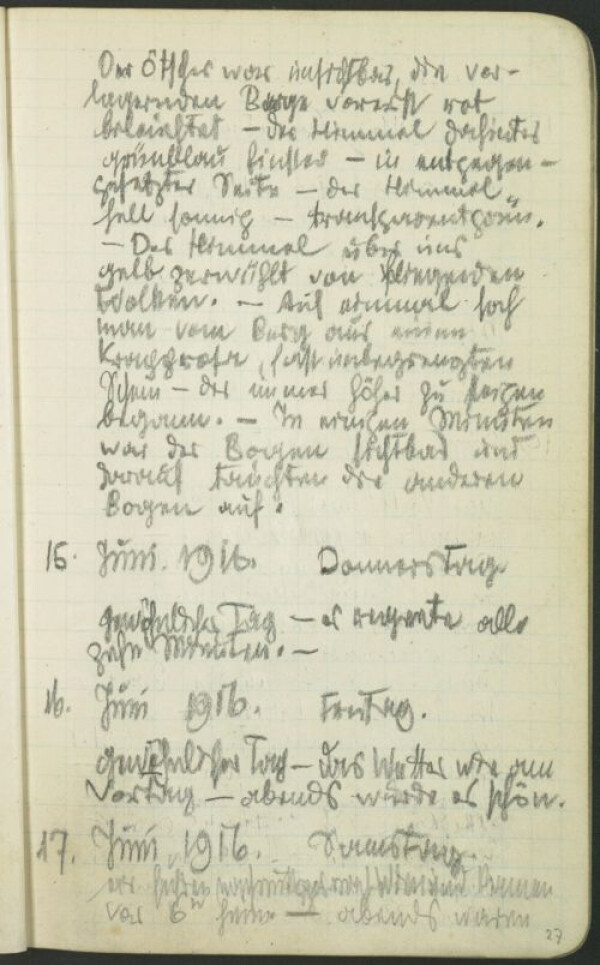 Der Ötscher war unsichtbar, die vor-
lagernden Berge vorerst rot
beleuchtet – der Himmel dahinter
grünblau finster – in entgegen-
gesetzter Seite – der Himmel
hell sonnig – transparentgrün.
– Der Himmel über uns
gelb zerwühlt von fliegenden
Wolken. – Auf einmal sah
man vom Berg aus einen
kreisgrossen, fast unbegrenzten
Schein – der immer höher zu steigen
begann. – In einigen Minuten
war der Bogen sichtbar und
darauf tauchten die anderen
Bogen auf.
15. Juni 1916. Donnerstag.
gewöhnlicher Tag – es regnete alle
zehn Minuten. –
16. Juni 1916. Freitag.
gewöhnlicher Tag – das Wetter wie am
Vortag – abends wurde es schön.
17. Juni 1916. Samstag.
wir fuhren nachmittags nach Wien und kamen
vor 6 – abends waren
27